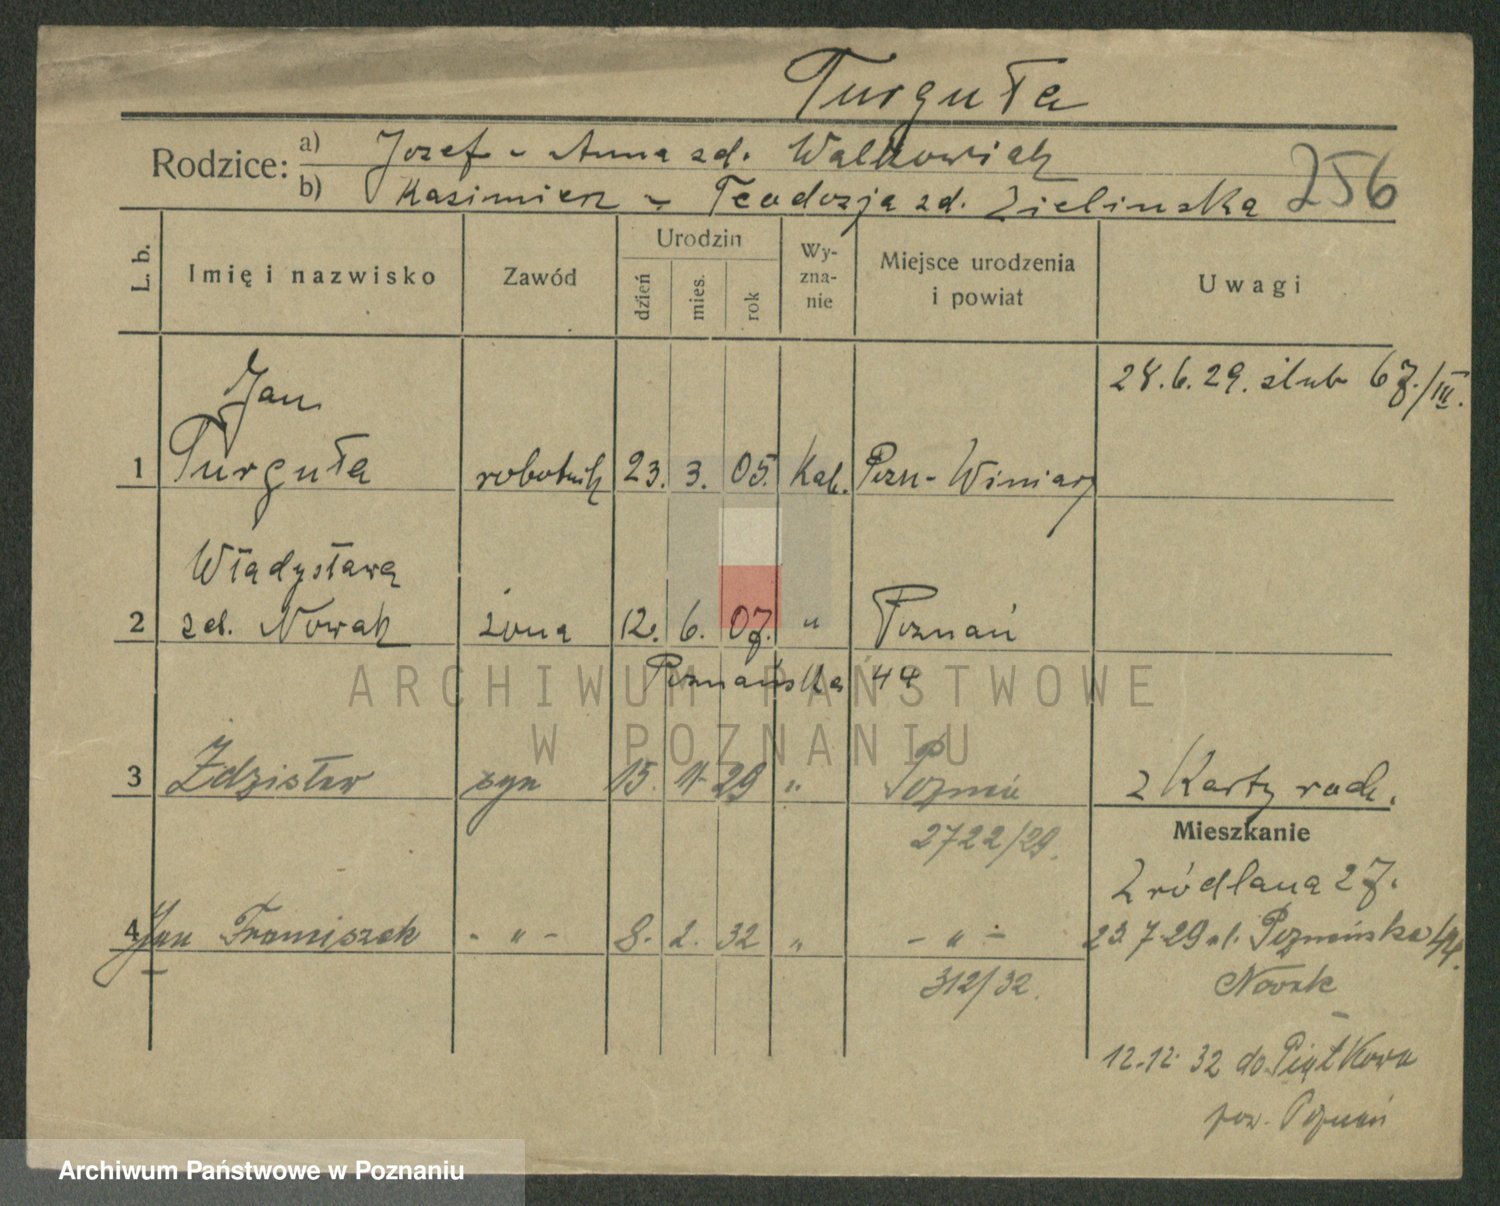 Turguła
Rodzice: a) Jozef - Anna zd. Walkowiak
b) Kasimierz - Teodozja zd. Zielinska 256
L. b. Imię i nazwisko Zawód Urodzin dzień mies. rok Wyznanie Miejsce urodzenia i powiat Uwagi
28.6.29. ślub 67./III.
Jan
1 Turguła robotnik 23. 3. 05. Kat. Pozn-Winiary
Władysława
2 zd. Nowak żona 12. 6. 07. " Poznań
Poznańska 44
ARCHIWUM PAŃSTWOWE
W POZNANIU
3 Zdzisław syn 15. 11. 29 " Poznań z Karty rodz.
2722/29.
Mieszkanie
Zródlana 27.
4 Jan Franciszek - " - 8. 2. 32 " - " - 23 7 29 ul. Poznańska 44.
312/32. Nowak
12.12.32 do Piątkowa
pow. Poznań
Archiwum Państwowe w Poznaniu